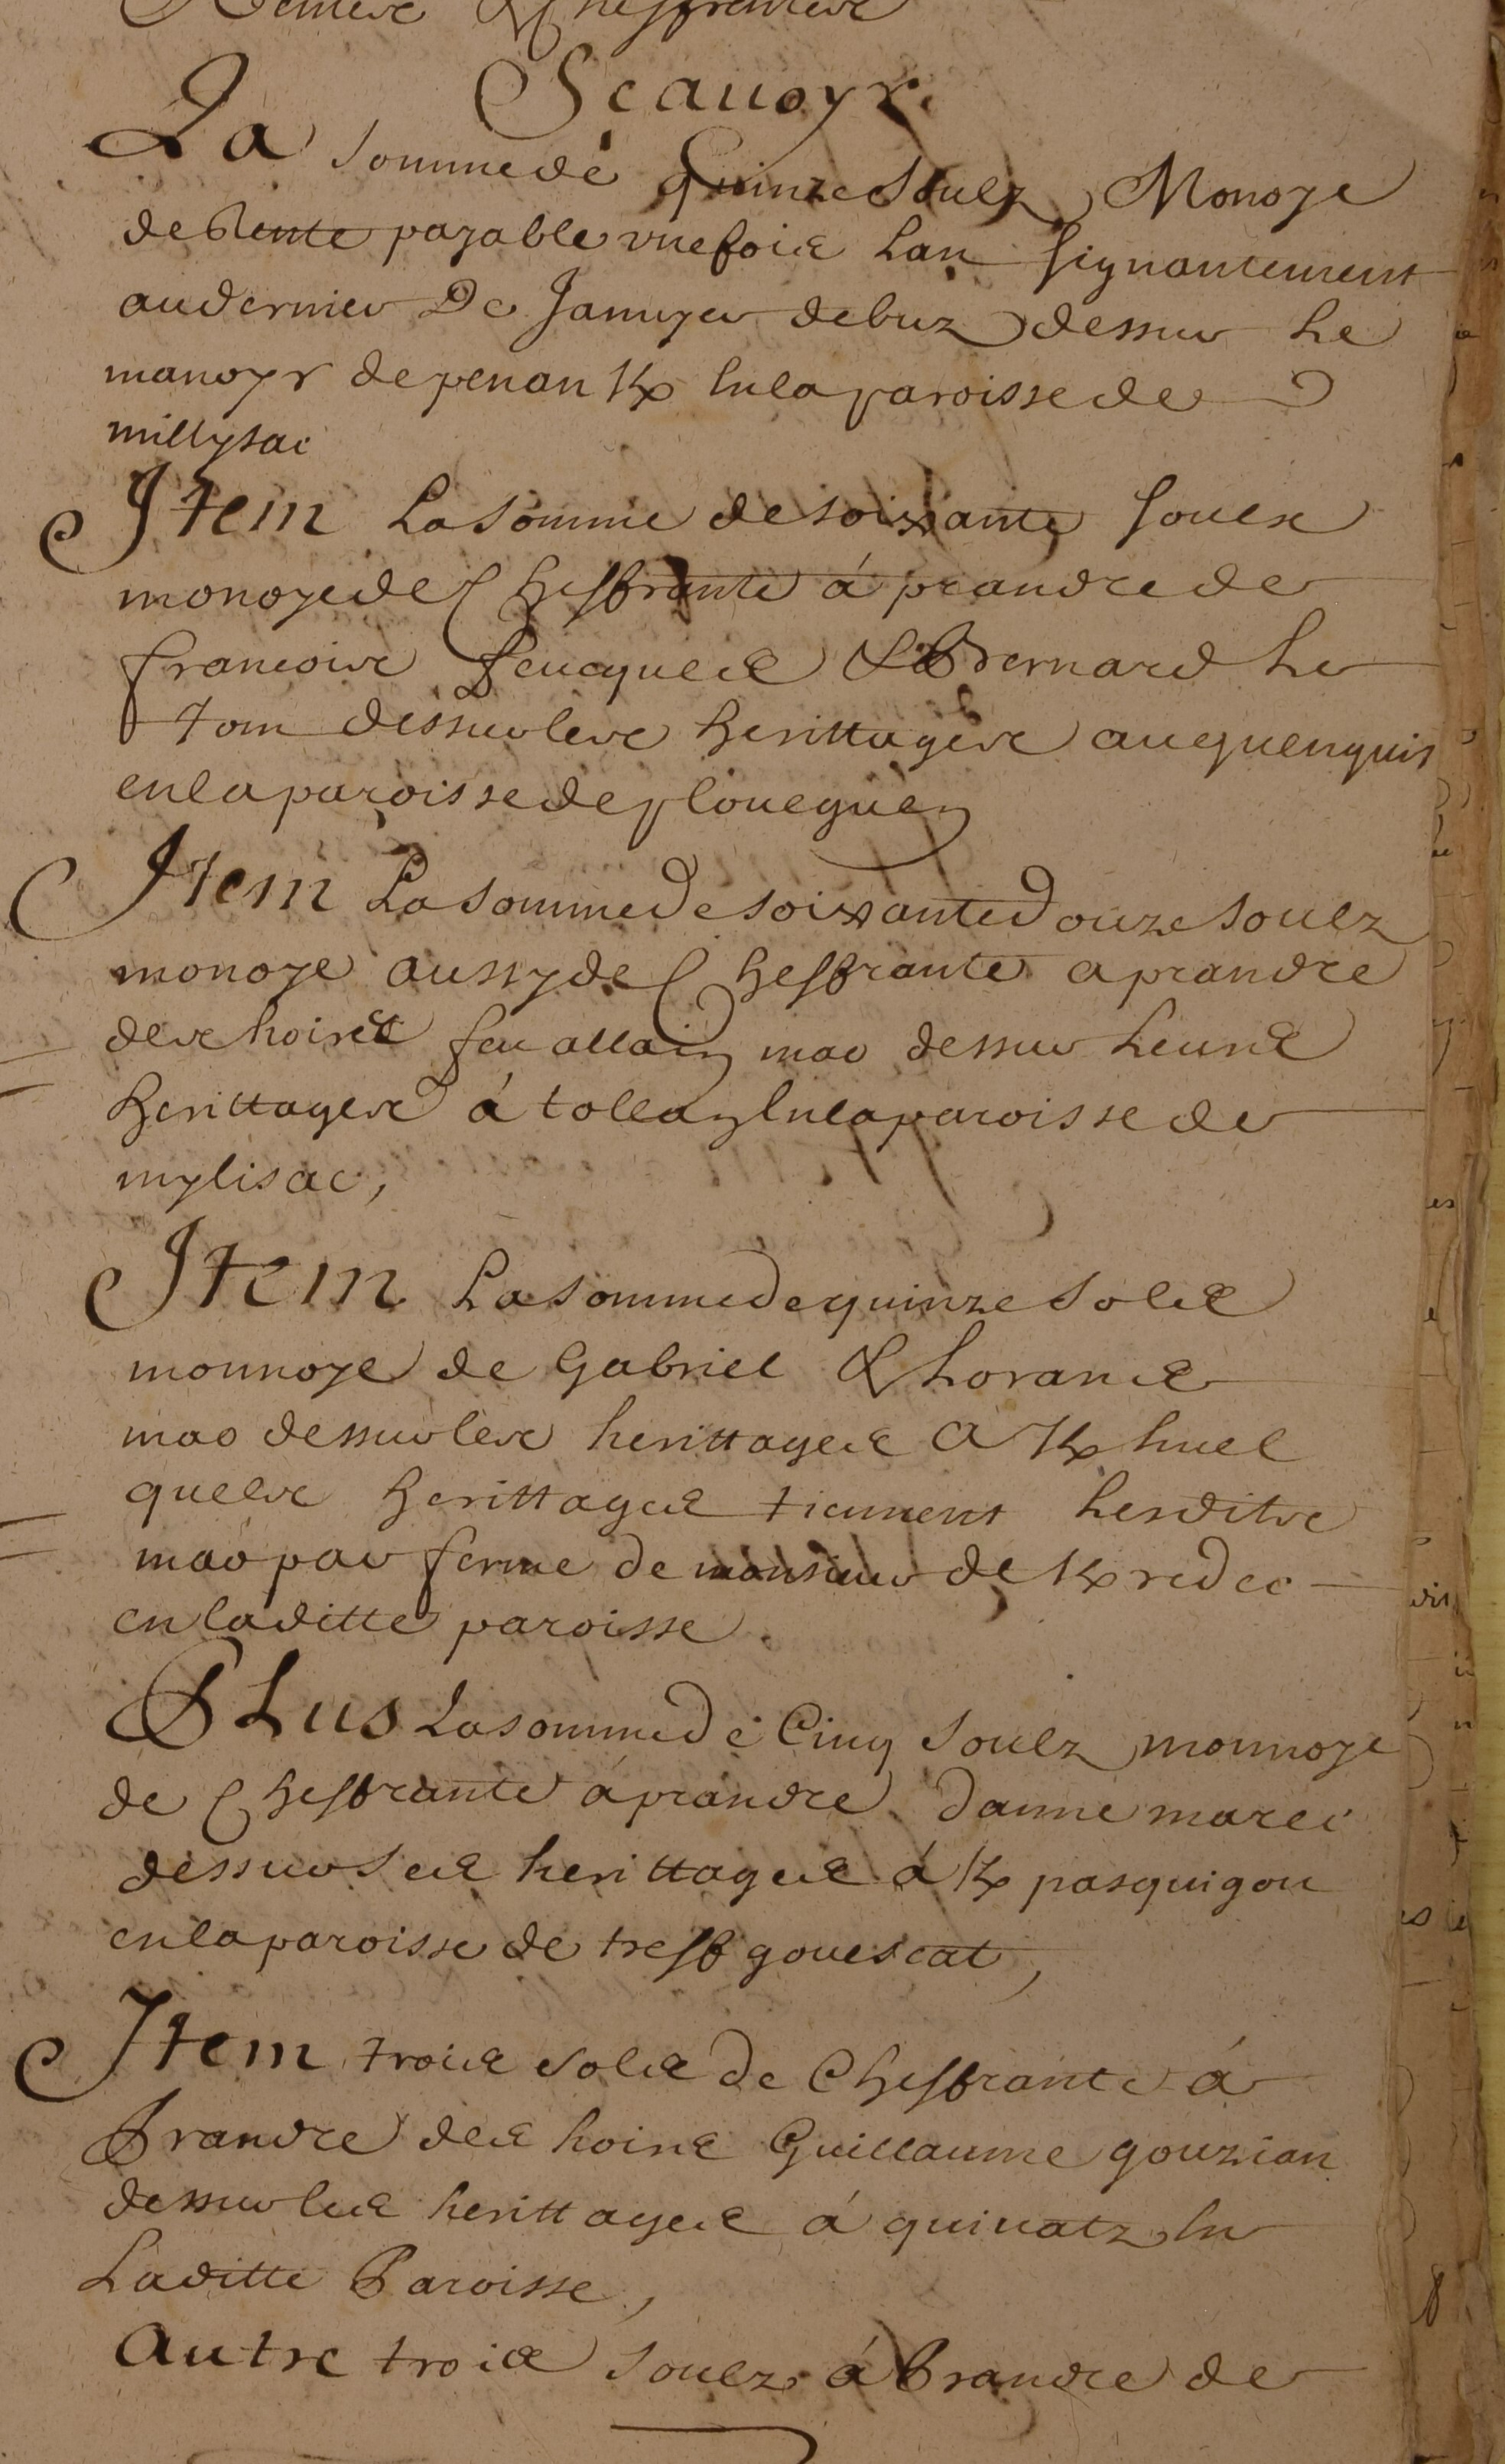 Rentes & Cheffrentes
Scauoyr
La somme de Quinze Soulz Monoye
de Rente payable vne fois Lan signantement
au dernier De Januyer debuz dessur Le
manoyr de penan K en la paroisse de
millysac
Item La somme de soixante soulz
monoye de Cheffrante á prandre de
francois & Bernard Le
tom dessur les herittages au quenquis
en la paroisse de ploueguen
Item La somme de soixante douze soulz
monoye aussy de Cheffrante a prandre
des hoirs feu allain mao dessur Leurs
herittages á tollan en la paroisse de
mylisac,
Item La somme de quinze sols
monnoye de Gabriel & Lorans
mao dessur les herittages a K huel
quels herittages tiennent Lesdits
mao par ferme de monsieur de K redec
en laditte paroisse
PLus La somme de Cinq soulz monnoye
de Cheffrante á prandre danne marec
dessur ses herittages á K pasquigou
en la paroisse de treffgouescat,
Item trois sols de Cheffrante á
Prandre des hoirs Guillaume gouzian
dessur les herittages á quiuatz en
Laditte Paroisse,
Autre trois soulz á Prandre de